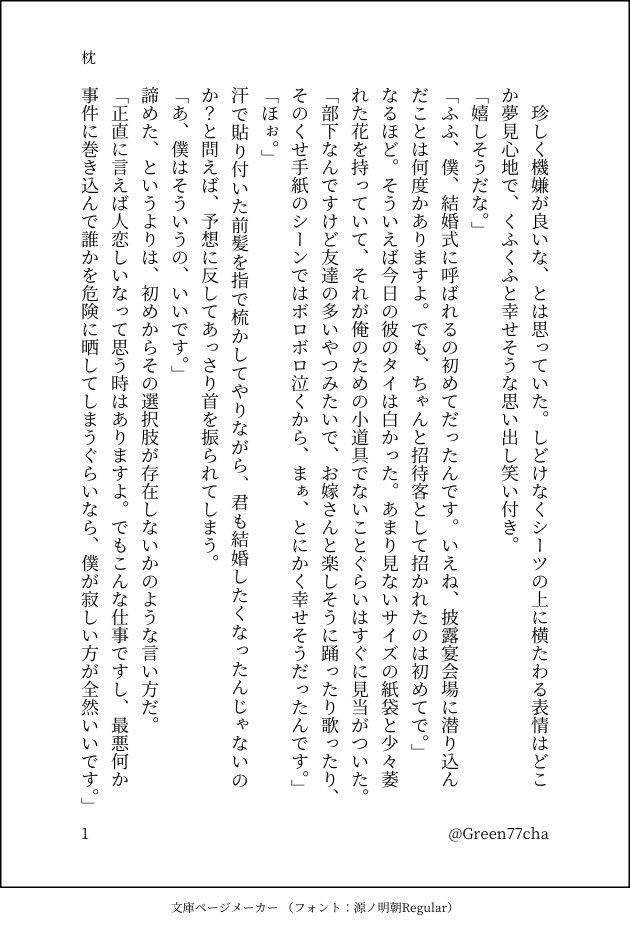 枕
　珍しく機嫌が良いな、とは思っていた。しどけなくシーツの上に横たわる表情はどこ
か夢見心地で、くふくふと幸せそうな思い出し笑い付き。
「嬉しそうだな。」
「ふふ、僕、結婚式に呼ばれるの初めてだったんです。いえね、披露宴会場に潜り込ん
だことは何度かありますよ。でも、ちゃんと招待客として招かれたのは初めてで。」
なるほど。そういえば今日の彼のタイは白かった。あまり見ないサイズの紙袋と少々萎
れた花を持っていて、それが俺のための小道具でないことぐらいはすぐに見当がついた。
「部下なんですけど友達の多いやつみたいで、お嫁さんと楽しそうに踊ったり歌ったり、
そのくせ手紙のシーンではボロボロ泣くから、まぁ、とにかく幸せそうだったんです。」
「ほぉ。」
汗で貼り付いた前髪を指で梳かしてやりながら、君も結婚したくなったんじゃないの
か？と問えば、予想に反してあっさり首を振られてしまう。
「あ、僕はそういうの、いいです。」
諦めた、というよりは、初めからその選択肢が存在しないかのような言い方だ。
「正直に言えば人恋しいなって思う時はありますよ。でもこんな仕事ですし、最悪何か
事件に巻き込んで誰かを危険に晒してしまうぐらいなら、僕が寂しい方が全然いいです。」
1
@Green77cha
文庫ページメーカー（フォント：源ノ明朝Regular）